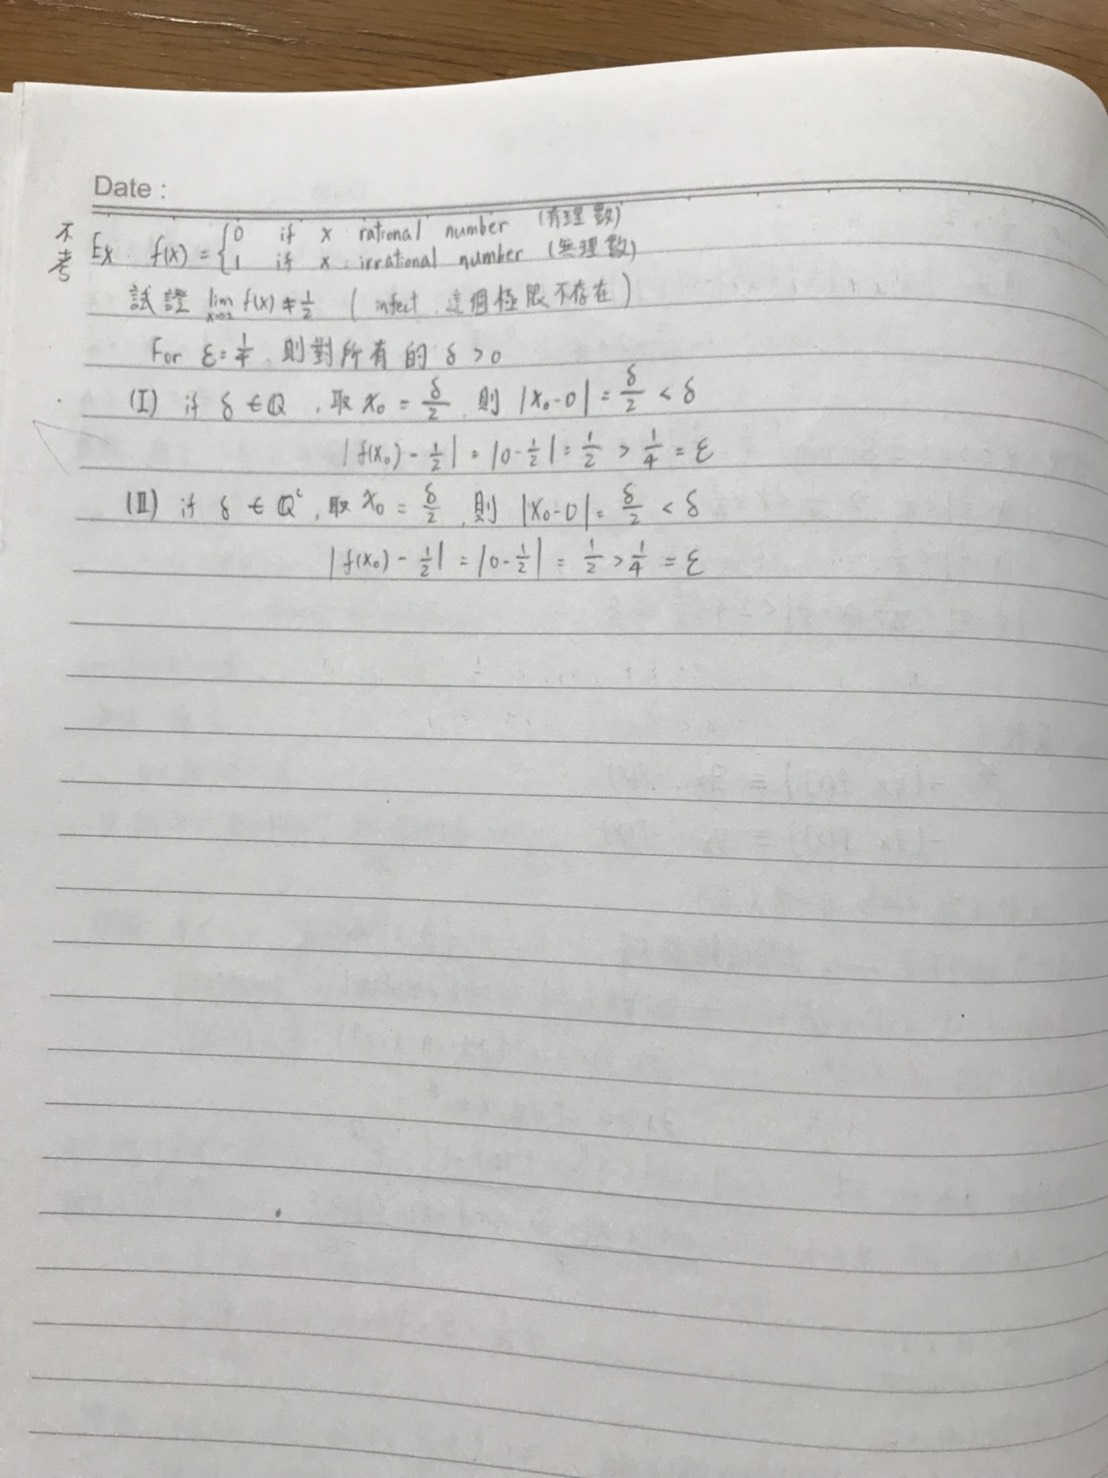 Date :
不考
Ex. f(x) = { 0 if x rational number (有理數)
1 if x irrational number (無理數)
試證 lim f(x) ≠ 1/2 ( infect, 這個極限不存在 )
For ε = 1/4, 則對所有的 δ > 0
(I) if δ ∈ Q, 取 x₀ = δ/2, 則 |x₀-0| = δ/2 < δ
|f(x₀) - 1/2| = |0 - 1/2| = 1/2 > 1/4 = ε
(II) if δ ∈ Qᶜ, 取 x₀ = δ/2, 則 |x₀-0| = δ/2 < δ
|f(x₀) - 1/2| = |0 - 1/2| = 1/2 > 1/4 = ε